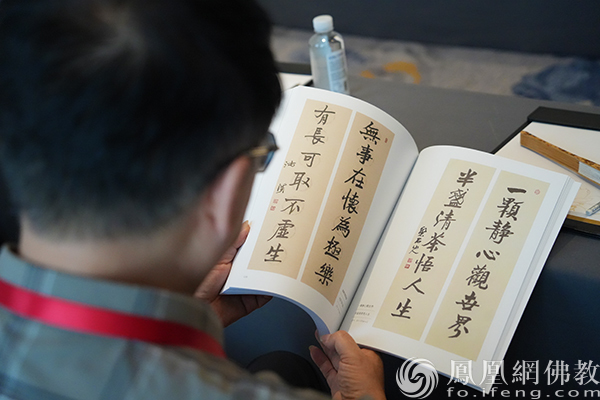 一顆静心觀世界
半盞清茶悟人生
無事在懷為極樂
有長可取不虛生
鳳凰網佛教
fo.ifeng.com